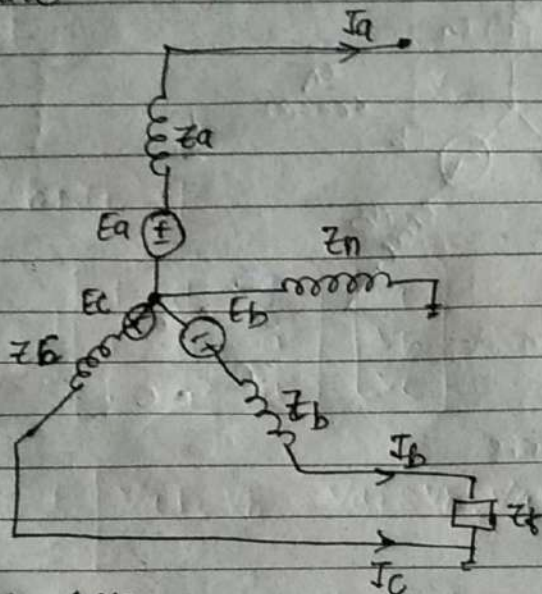 Ia
Za
Ea
Zn
Ec
Eb
Zb
Ib
Zf
Ic